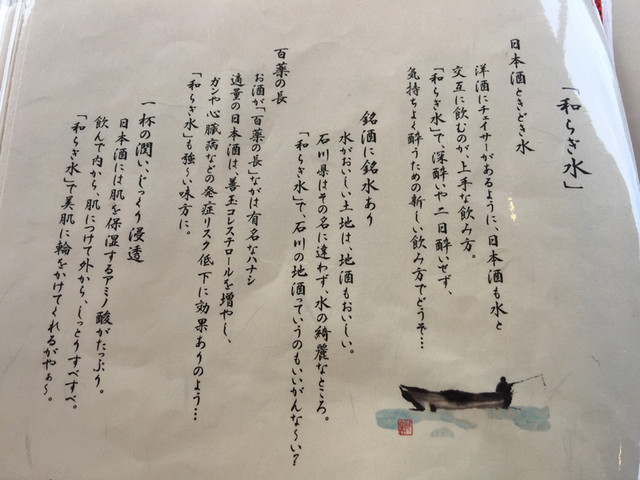 「和らぎ水」
日本酒ときどき水
洋酒にチェイサーがあるように、日本酒も水と
交互に飲むのが、上手な飲み方。
「和らぎ水」で、深酔いや二日酔いせず、
気持ちよく酔うための新しい飲み方でどうぞ…
銘酒に銘水あり
水がおいしい土地は、地酒もおいしい。
石川県はその名に違わず、水の綺麗なところ。
「和らぎ水」で、石川の地酒っていうのもいいがんな〜い？
百薬の長
お酒が「百薬の長」ながは有名なハナシ
適量の日本酒は、善玉コレステロールを増やし、
ガンや心臓病などの発症リスク低下に効果ありのよう…
「和らぎ水」も強〜い味方に。
一杯の潤い、じっくり浸透
日本酒には肌を保湿するアミノ酸がたっぷり。
飲んで内から、肌につけて外から、しっとりすべすべ。
「和らぎ水」で美肌に輪をかけてくれるがやぁ〜。